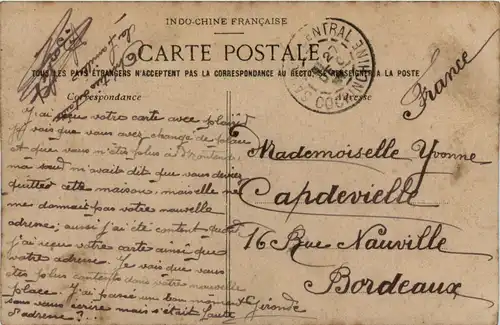 INDO-CHINE FRANÇAISE
CARTE POSTALE
TOUS LES PAYS ÉTRANGERS N'ACCEPTENT PAS LA CORRESPONDANCE AU RECTO, SE RENSEIGNER A LA POSTE
Correspondance
Adresse
CENTRAL
COCHINCHINE
France
J'ai reçu votre carte avec plaisir
Je vois que vous avez changé de place
et que vous n'êtes plus à
ma sœur m'avait dit que vous deviez
quitter cette maison, mais elle ne
me donnait pas votre nouvelle
adresse, aussi j'ai été content quand
j'ai reçu votre carte ainsi que
votre adresse. Je vois que vous
êtes plus contente dans votre nouvelle
place. J'ai passé un bon moment
sans vous écrire mais c'était faute
d'adresse?...
Mademoiselle Yvonne
Capdevielle
16 Rue Nauville
Bordeaux
Gironde